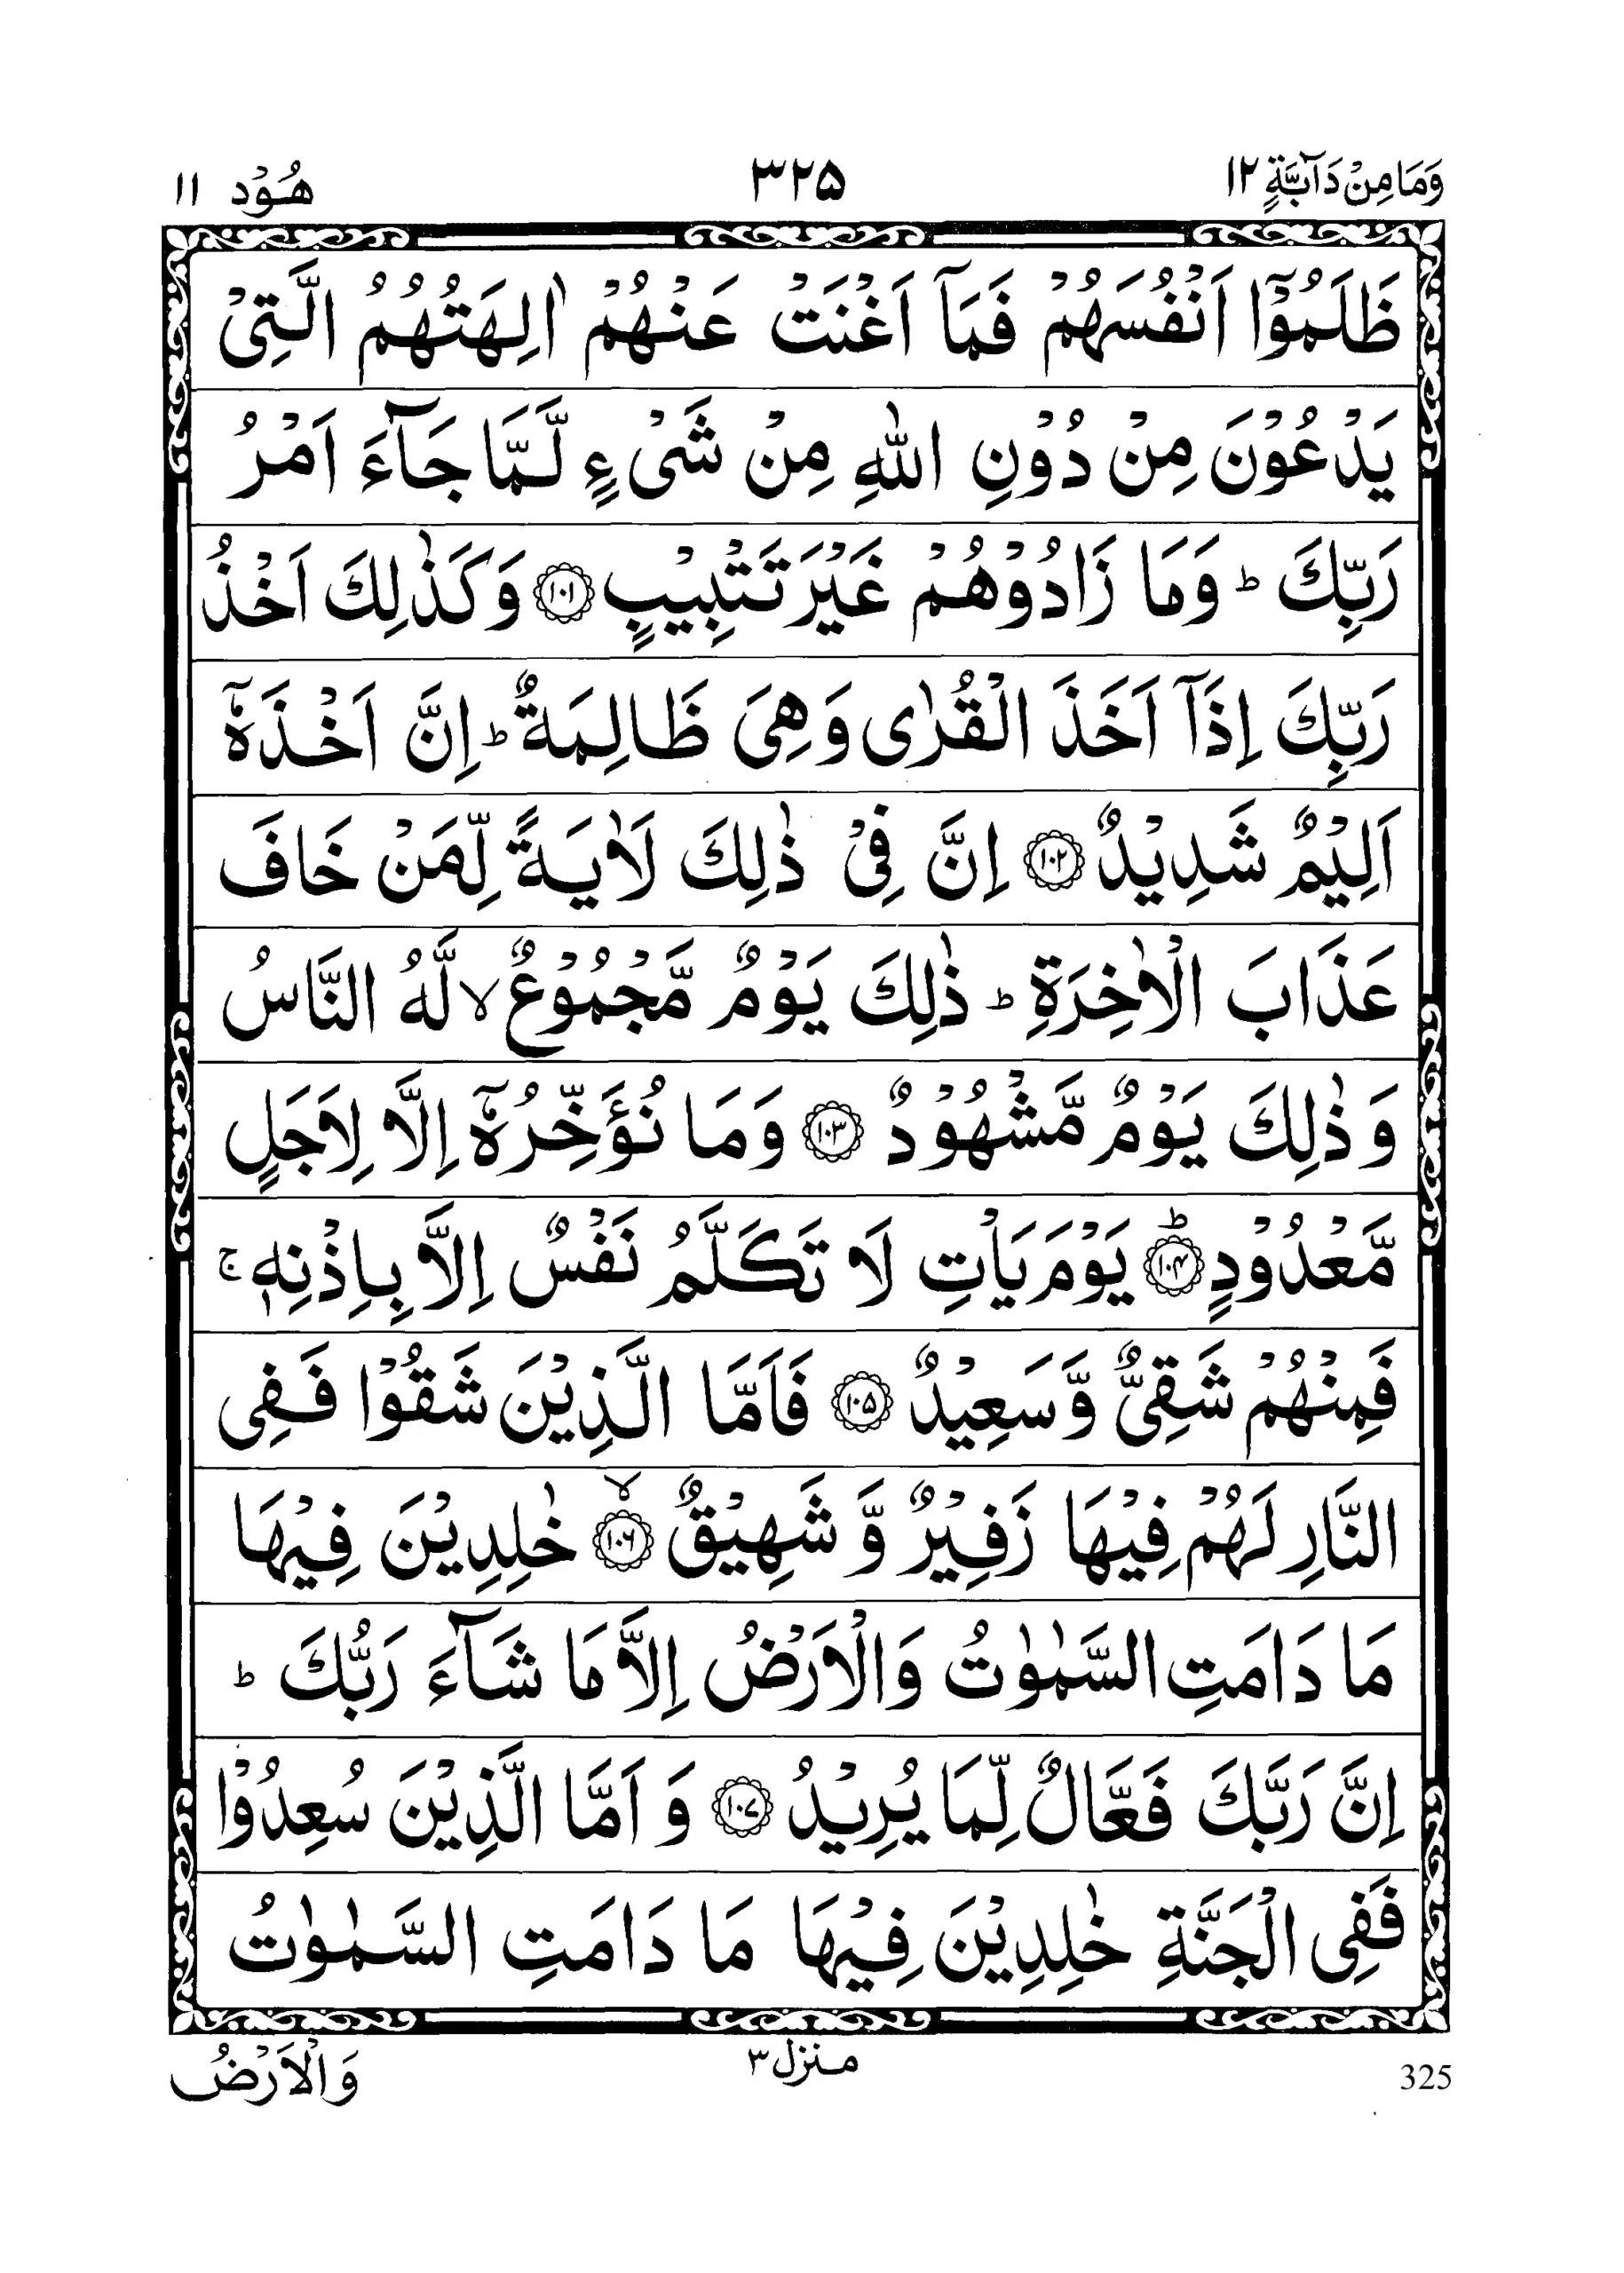 وَمَا مِنْ دَآبَّةٍ ١٢ ٣٢٥ هُوْد ١١
ظَلَمُوْۤا اَنْفُسَهُمْ فَمَاۤ اَغْنَتْ عَنْهُمْ اٰلِهَتُهُمُ الَّتِیْ
یَدْعُوْنَ مِنْ دُوْنِ اللّٰهِ مِنْ شَیْءٍ لَّمَّا جَآءَ اَمْرُ
رَبِّكَ ؕ وَمَا زَادُوْهُمْ غَیْرَ تَتْبِیْبٍ ﴿۱۰۱﴾ وَكَذٰلِكَ اَخْذُ
رَبِّكَ اِذَاۤ اَخَذَ الْقُرٰی وَهِیَ ظَالِمَةٌ ؕ اِنَّ اَخْذَهٗۤ
اَلِیْمٌ شَدِیْدٌ ﴿۱۰۲﴾ اِنَّ فِیْ ذٰلِكَ لَاٰیَةً لِّمَنْ خَافَ
عَذَابَ الْاٰخِرَةِ ؕ ذٰلِكَ یَوْمٌ مَّجْمُوْعٌ ۙ لَّهُ النَّاسُ
وَذٰلِكَ یَوْمٌ مَّشْهُوْدٌ ﴿۱۰۳﴾ وَمَا نُؤَخِّرُهٗۤ اِلَّا لِاَجَلٍ
مَّعْدُوْدٍ ﴿۱۰۴﴾ؕ یَوْمَ یَاْتِ لَا تَكَلَّمُ نَفْسٌ اِلَّا بِاِذْنِهٖ ۚ
فَمِنْهُمْ شَقِیٌّ وَّسَعِیْدٌ ﴿۱۰۵﴾ فَاَمَّا الَّذِیْنَ شَقُوْا فَفِی
النَّارِ لَهُمْ فِیْهَا زَفِیْرٌ وَّشَهِیْقٌ ﴿۱۰۶﴾ۙ خٰلِدِیْنَ فِیْهَا
مَا دَامَتِ السَّمٰوٰتُ وَالْاَرْضُ اِلَّا مَا شَآءَ رَبُّكَ ؕ
اِنَّ رَبَّكَ فَعَّالٌ لِّمَا یُرِیْدُ ﴿۱۰۷﴾ وَاَمَّا الَّذِیْنَ سُعِدُوْا
فَفِی الْجَنَّةِ خٰلِدِیْنَ فِیْهَا مَا دَامَتِ السَّمٰوٰتُ
325 منزل ٣ وَالْاَرْضُ